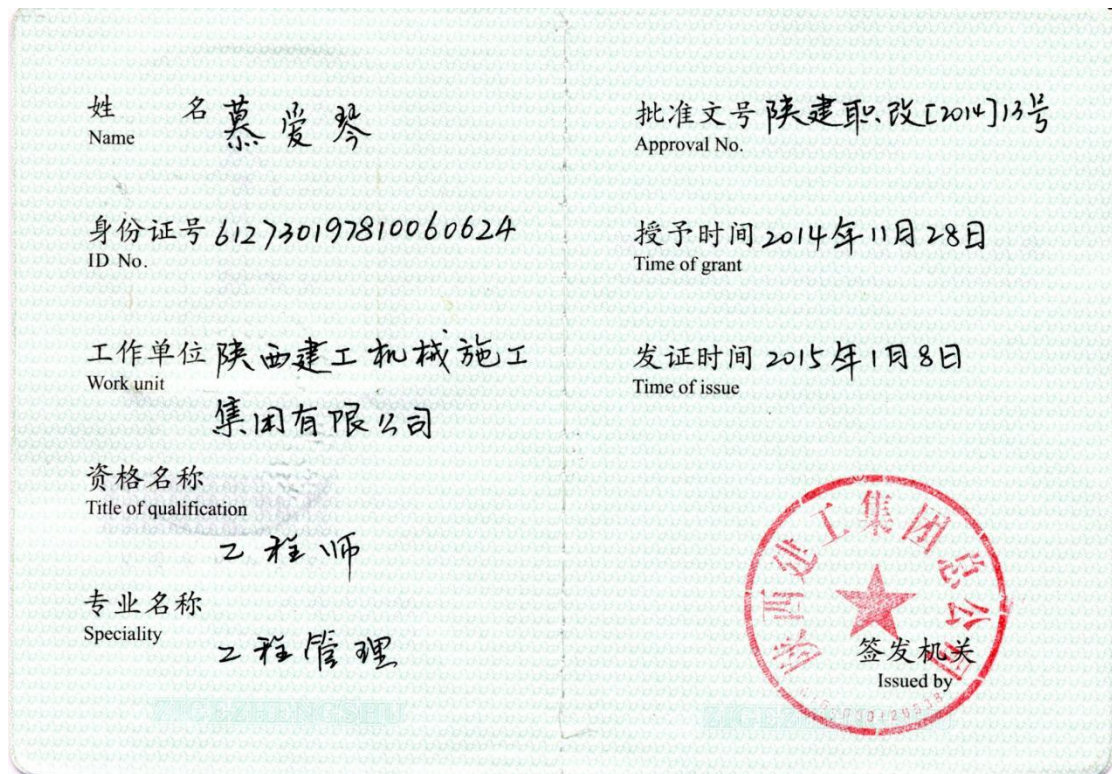 姓 名 慕爱琴
Name
身份证号 612730197810060624
ID No.
工作单位 陕西建工机械施工
Work unit
集团有限公司
资格名称
Title of qualification
工程师
专业名称
Speciality
工程管理
ZIGEZHENGSHU
批准文号 陕建职改[2014]13号
Approval No.
授予时间 2014年11月28日
Time of grant
发证时间 2015年1月8日
Time of issue
陕西建工集团总公司
签发机关
Issued by